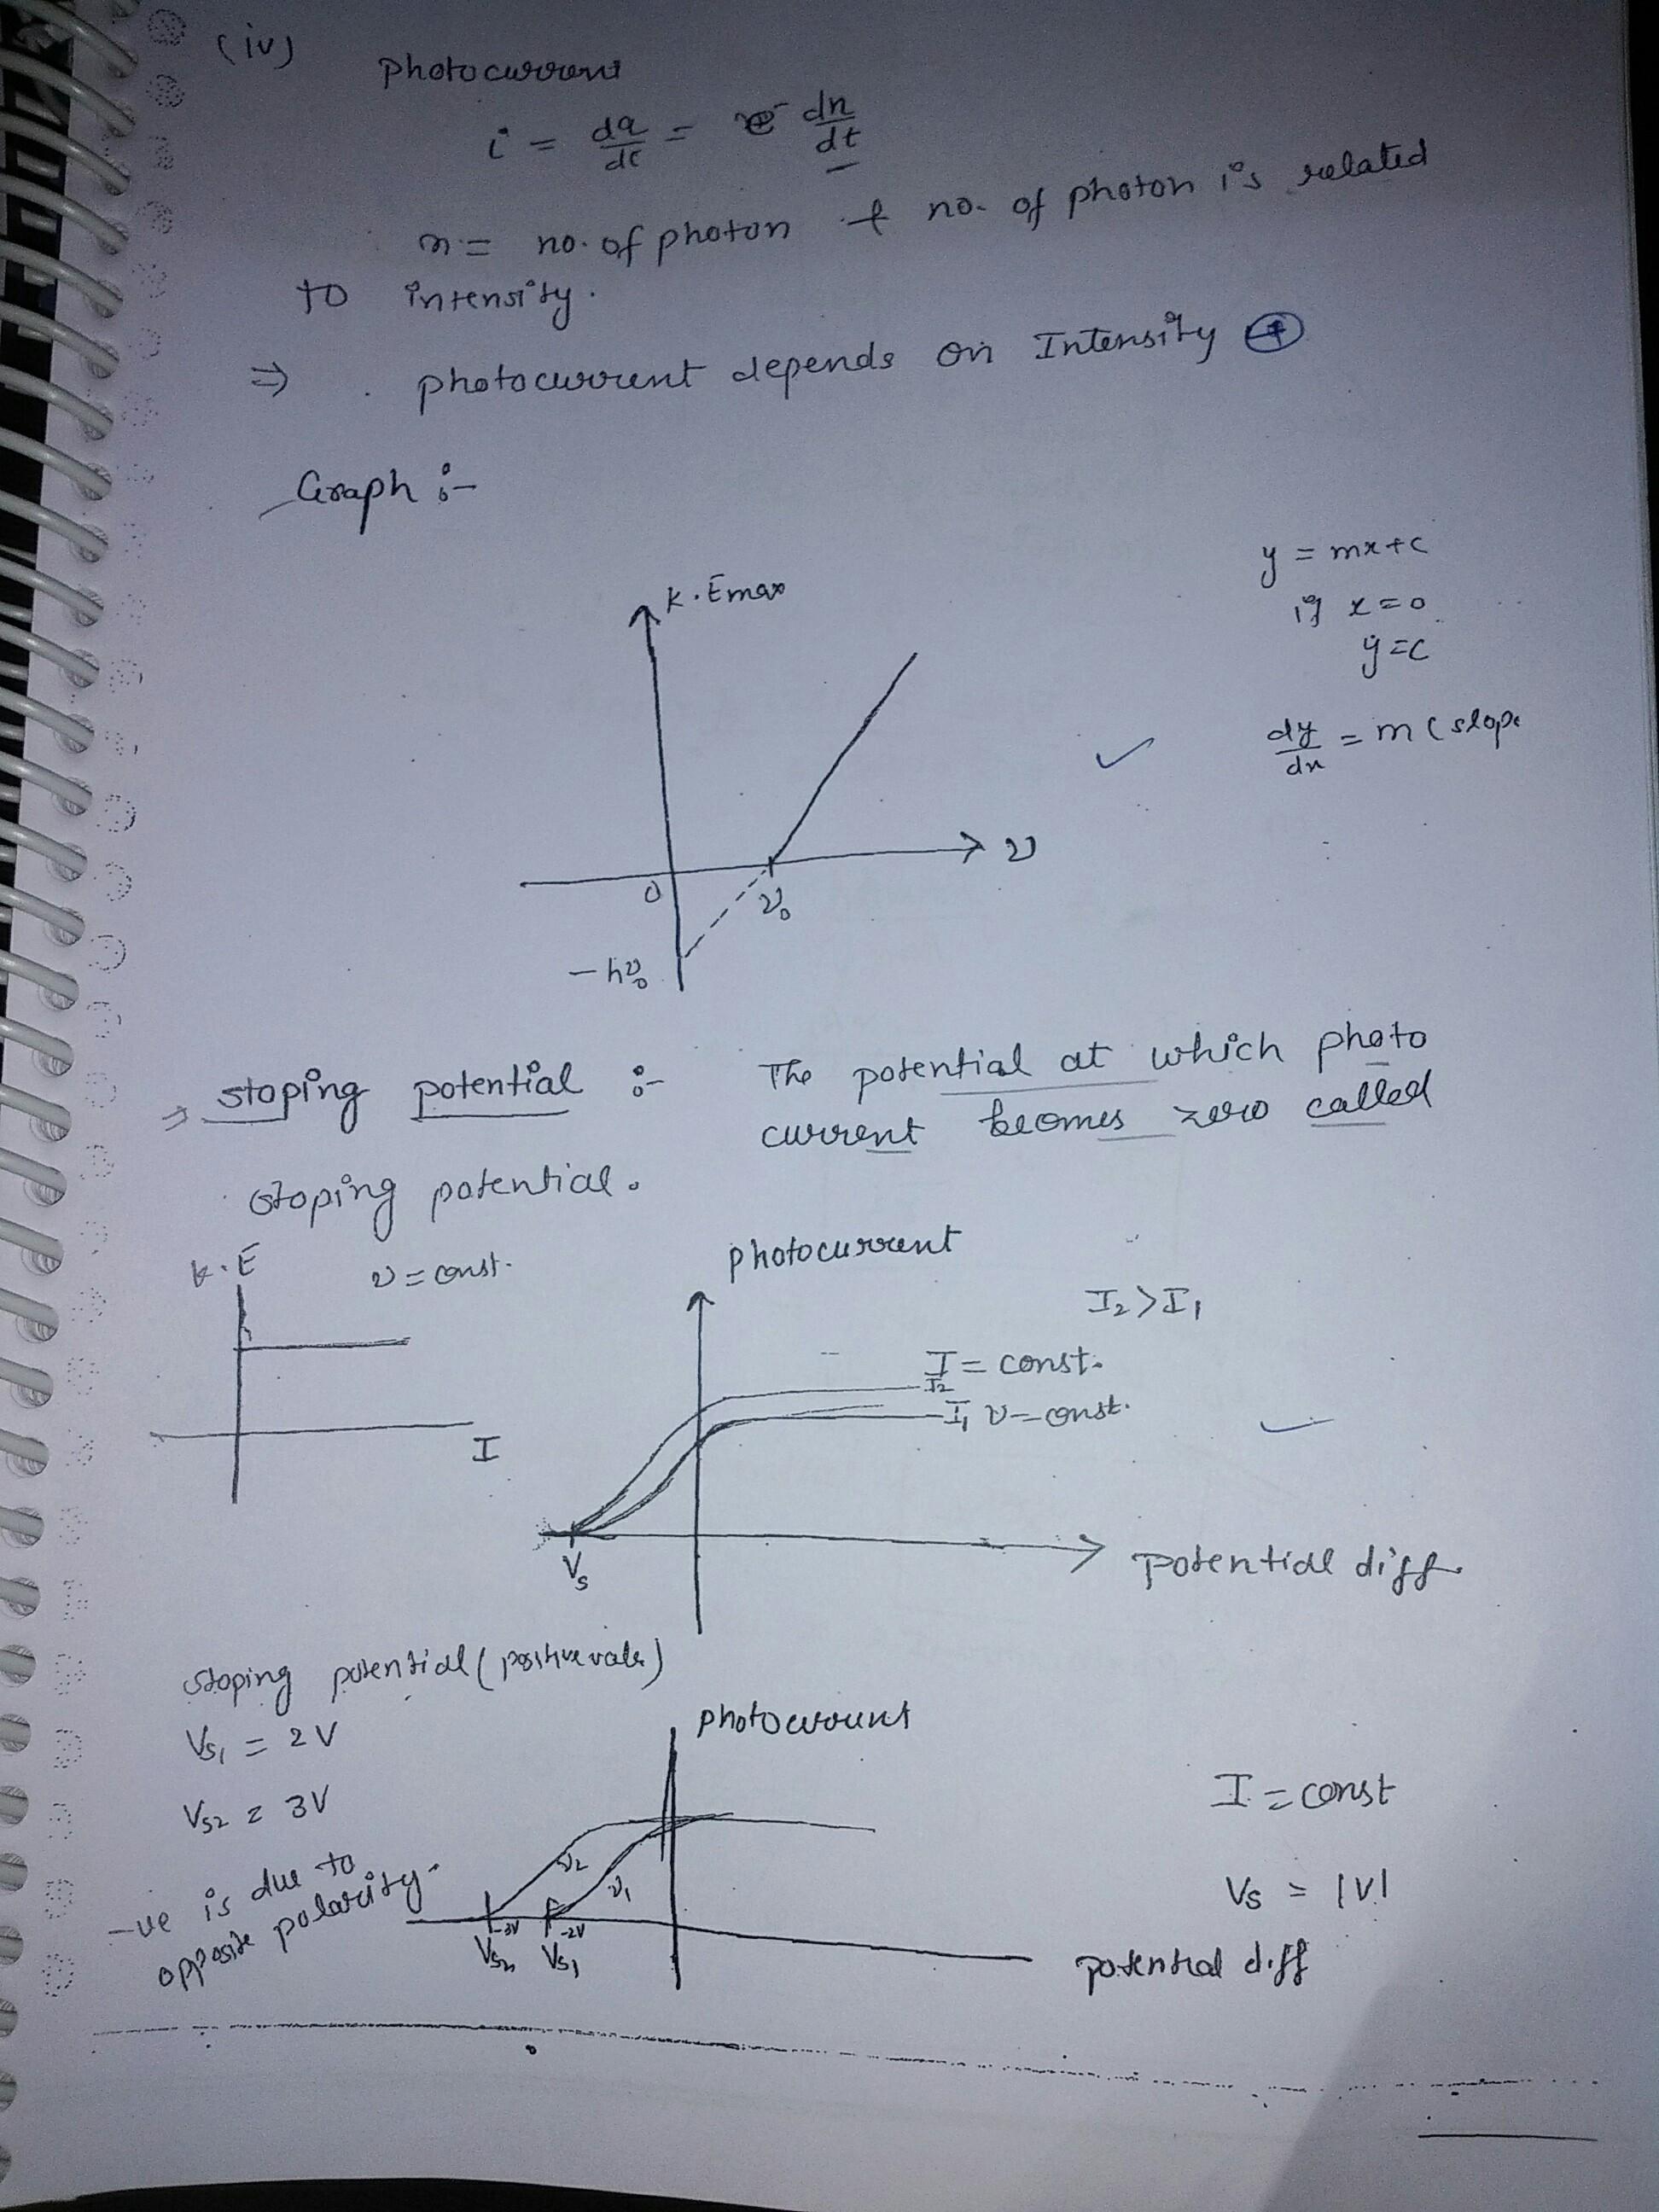 (iv) Photocurrent
i = dq/dt = e⁻ dn/dt
n = no. of photon & no. of photon is related
to intensity.
⇒ photocurrent depends on Intensity
Graph :-
y = mx+c
if x=0
y=c
dy/dx = m (slope
K.Emax
ν
0
ν₀
-hν₀
⇒ stoping potential :- The potential at which photo
current becomes zero called
stoping potential.
k.E
ν = const.
I
photocurrent
I₂ > I₁
I = const.
I₂
I₁ ν = const.
Vs
potential diff.
stoping potential (positive vale)
Vs₁ = 2V
Vs₂ = 3V
-ve is due to
opposite polarity.
photocurrent
I = const
Vs = |V|
ν₂
ν₁
-3V
-2V
Vs₂
Vs₁
potential diff